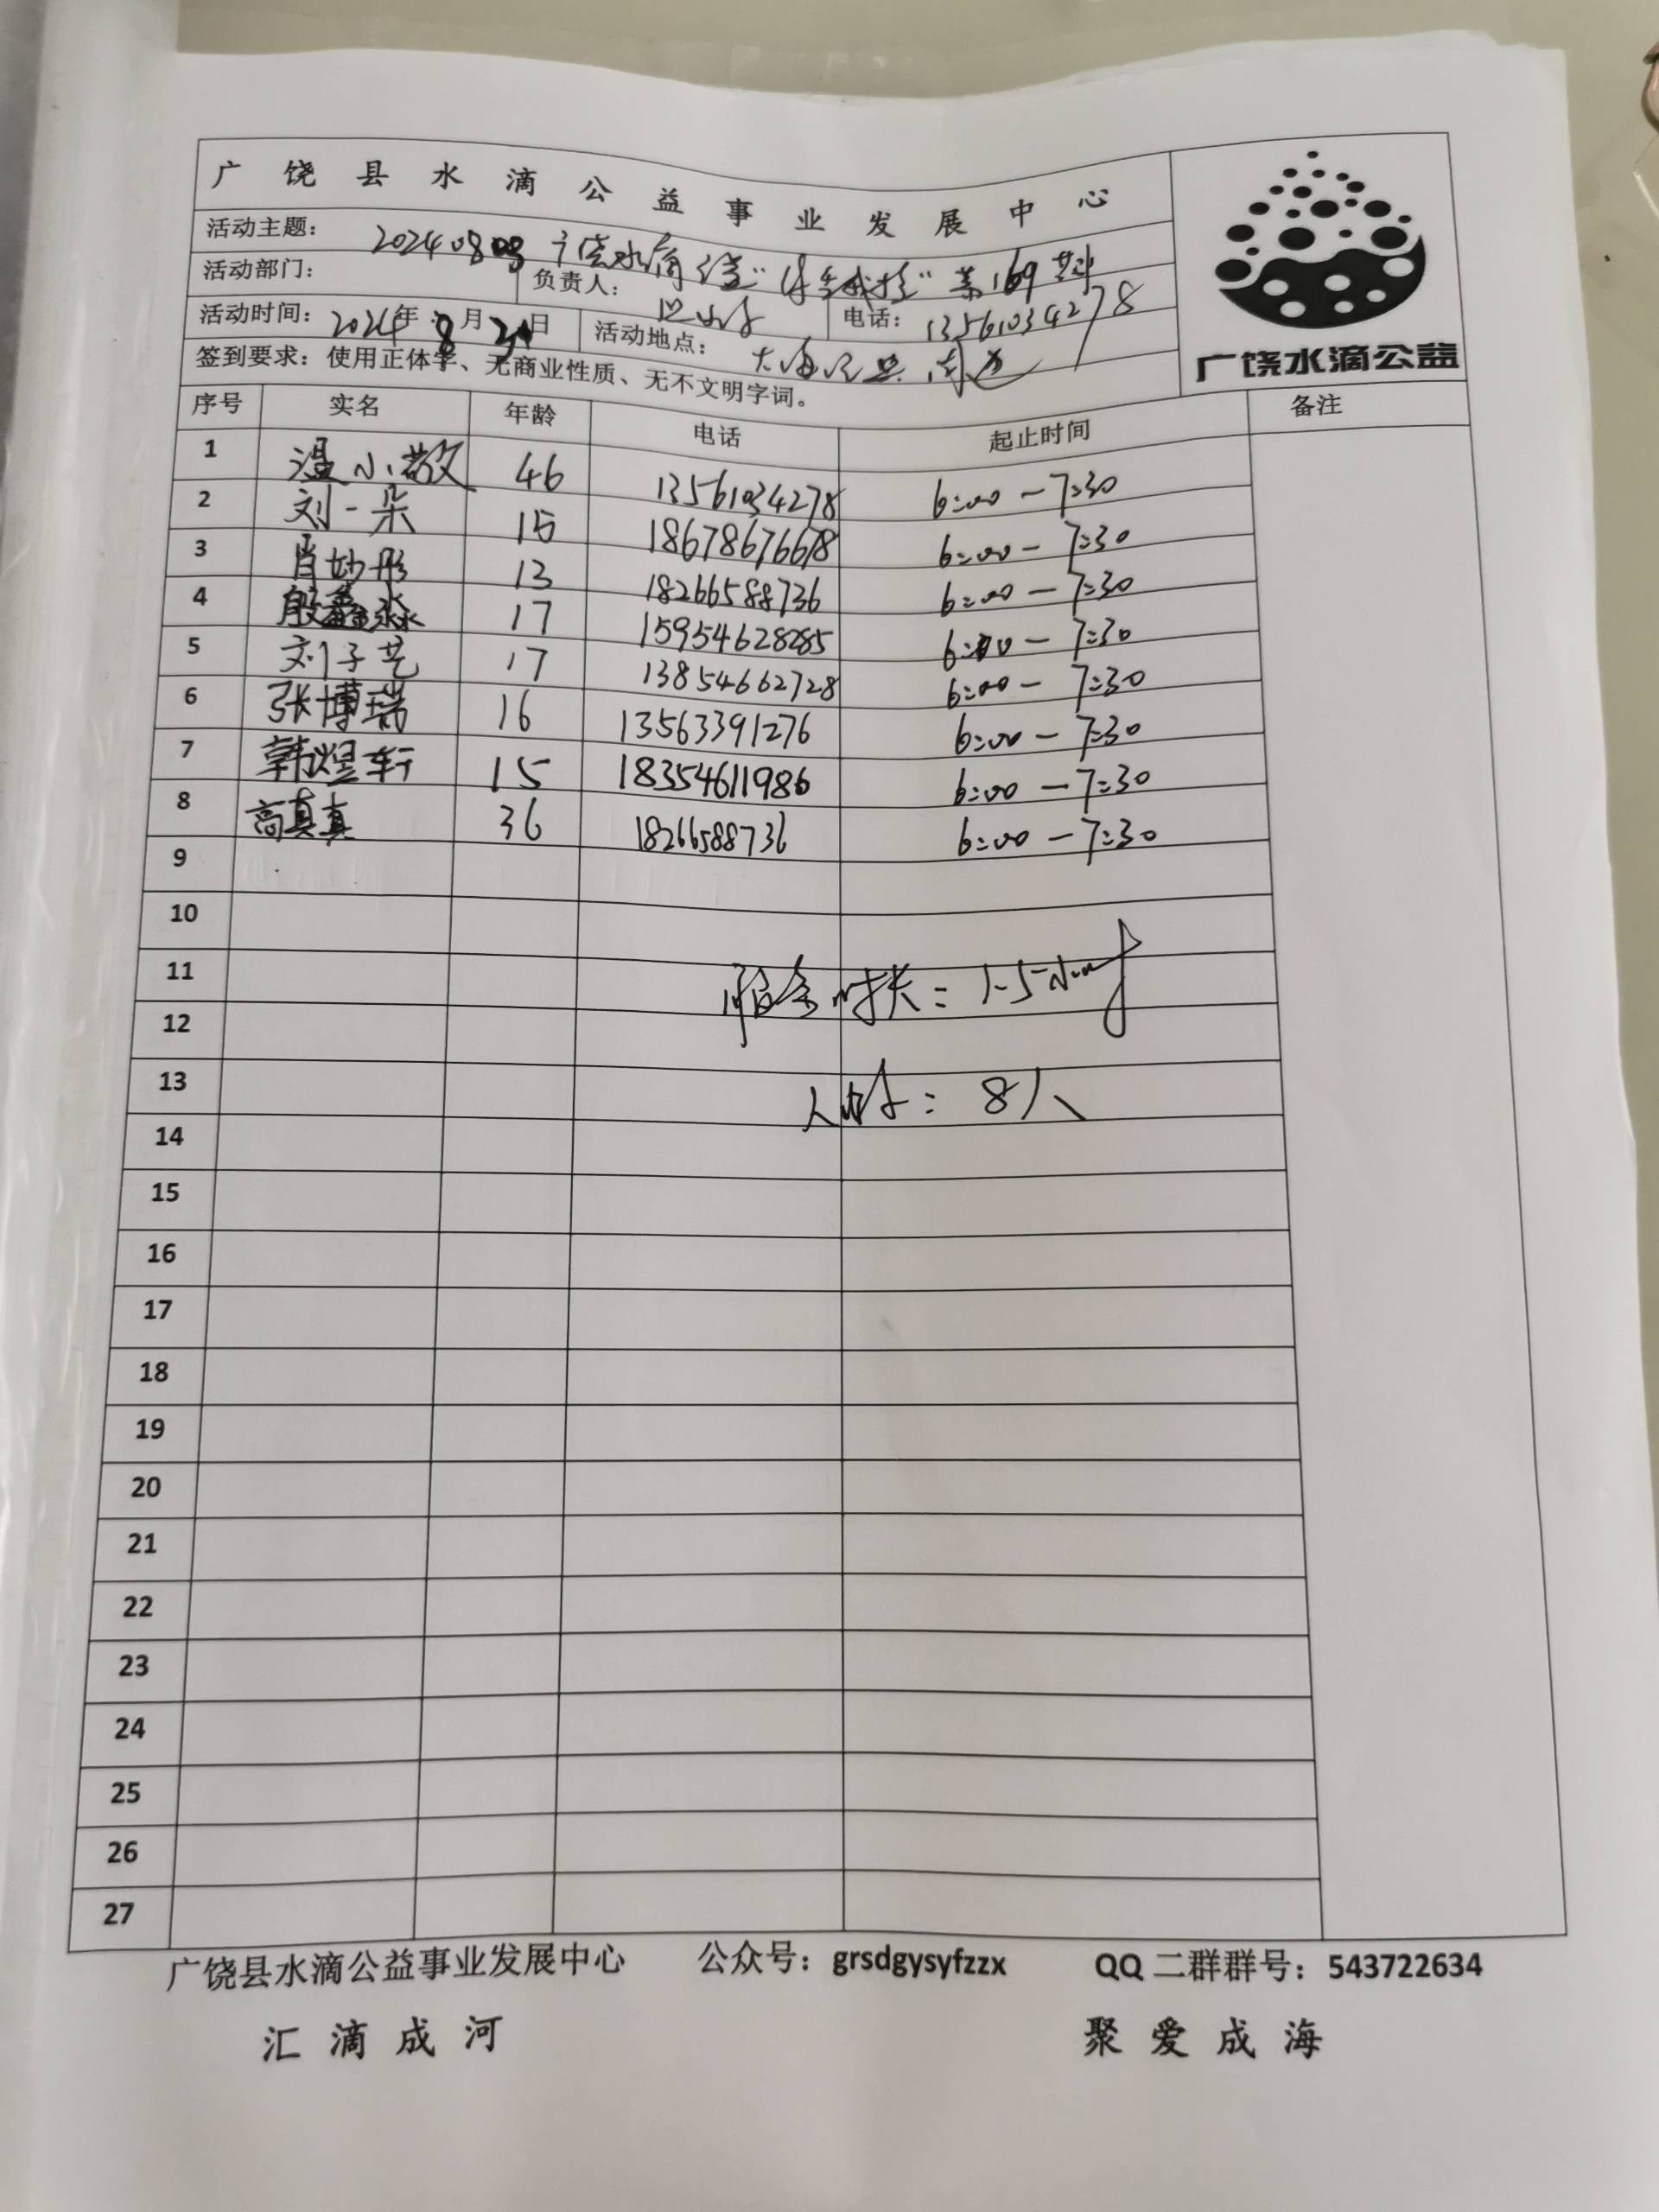 广饶县水滴公益事业发展中心
活动主题： 202408 广饶水滴 第169
活动部门： 负责人： 电话：13561034278
活动时间：2024年8月 日 活动地点： 大海
签到要求：使用正体字、无商业性质、无不文明字词。
广饶水滴公益
序号 实名 年龄 电话 起止时间 备注
1 温小散 46 13561034278 6:00-7:30
2 刘一朵 15 18678676678 6:00-7:30
3 肖妙彤 13 18266588736 6:00-7:30
4 殷鑫淼 17 15954628285 6:00-7:30
5 刘子艺 17 13854662728 6:00-7:30
6 张博瑞 16 13563391276 6:00-7:30
7 韩煜轩 15 18354611986 6:00-7:30
8 高真真 36 18266588736 6:00-7:30
9
10
11 时长：1.5小时
12
13 人数：8人
14
15
16
17
18
19
20
21
22
23
24
25
26
27
广饶县水滴公益事业发展中心 公众号：grsdgysyfzzx QQ二群群号：543722634
汇滴成河 聚爱成海